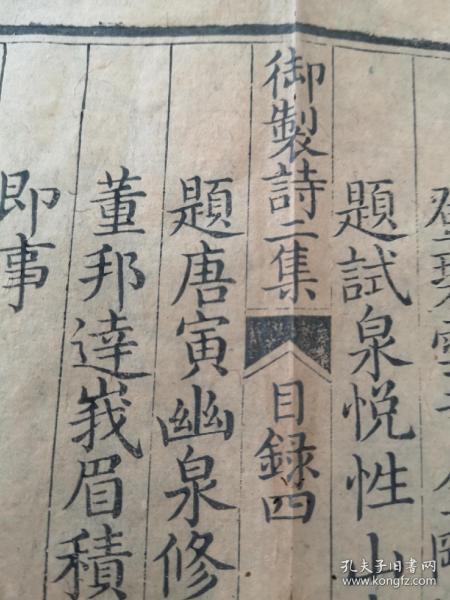 題試泉悅性山
御製詩二集 目録四
題唐寅幽泉修
董邦達峩眉積
即事
孔夫子旧书网
www.kongfz.com